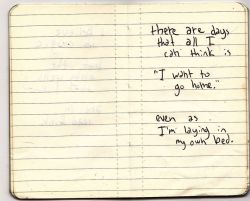 there are days
that all I
can think is
"I want to
go home."
even as
I'm laying in
my own bed.